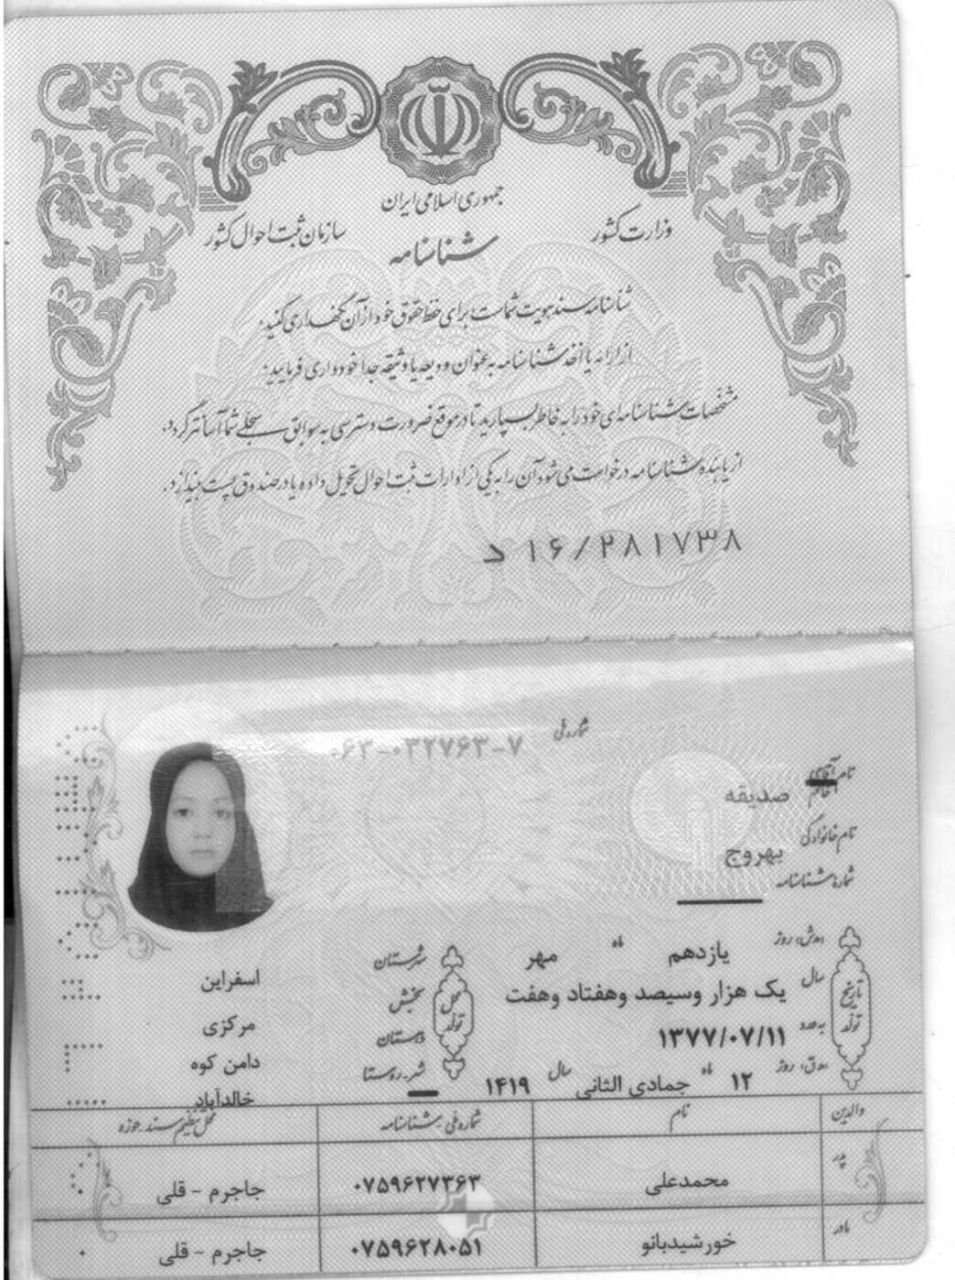 جمهوری اسلامی ایران
وزارت کشور
سازمان ثبت احوال کشور
شناسنامه
شناسنامه سند هویت شماست برای حفظ حقوق خود از آن نگهداری کنید.
از ارائه یا اخذ شناسنامه به عنوان ودیعه یا وثیقه جداً خودداری فرمایید.
مشخصات شناسنامه‌ای خود را به خاطر بسپارید تا در موقع ضرورت دسترسی به سوابق سجلی شما آسانتر گردد.
از یابنده شناسنامه درخواست می‌شود آن را به یکی از ادارات ثبت احوال تحویل داده یا در صندوق پست بیندازد.
د ۱۶/۲۸۱۷۳۸
شماره ملی ۰۶۳-۰۳۲۷۶۳-۷
نام آقای
خانم صدیقه
نام خانوادگی بهروج
شماره شناسنامه
تاریخ تولد
ه‍.ش: روز یازدهم ماه مهر
سال یک هزار وسیصد وهفتاد وهفت
به عدد ۱۳۷۷/۰۷/۱۱
ه‍.ق: روز ۱۲ ماه جمادی الثانی سال ۱۴۱۹
محل تولد
شهرستان اسفراین
بخش مرکزی
دهستان دامن کوه
شهر-روستا خالدآباد
والدین نام شماره ملی-شناسنامه محل تنظیم سند-حوزه
پدر محمدعلی ۰۷۵۹۶۲۷۳۶۳ جاجرم - قلی
مادر خورشیدبانو ۰۷۵۹۶۲۸۰۵۱ جاجرم - قلی